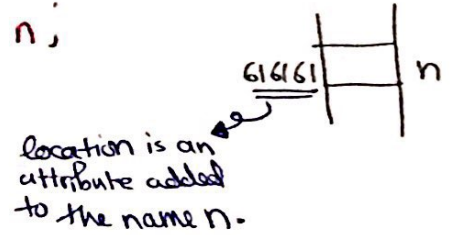 n;
616161 n
location is an
attribute added
to the name n.